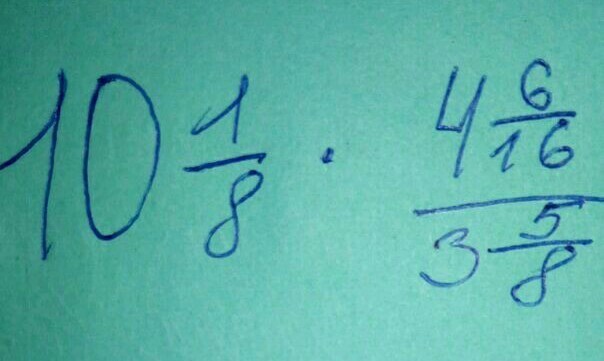 10 1/8 · (4 6/16)/(3 5/8)